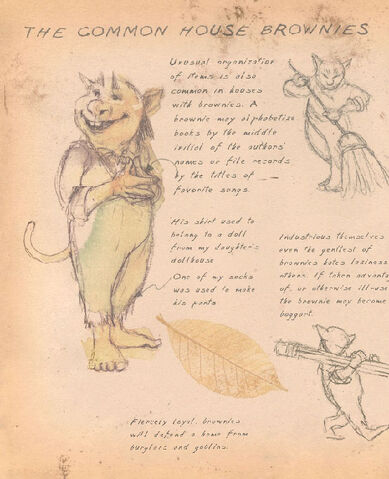 THE COMMON HOUSE BROWNIES
Unusual organization
of items is also
common in houses
with brownies. A
brownie may alphabetize
books by the middle
initial of the authors'
names or file records
by the titles of
favorite songs.
His shirt used to
belong to a doll
from my daughter's
dollhouse
One of my socks
was used to make
his pants
Industrious themselves
even the gentlest of
brownies hates laziness
others. If taken advanta
of, or otherwise ill-use
the brownie may become
boggart.
Fiercely loyal, brownies
will defend a home from
burglars and goblins.